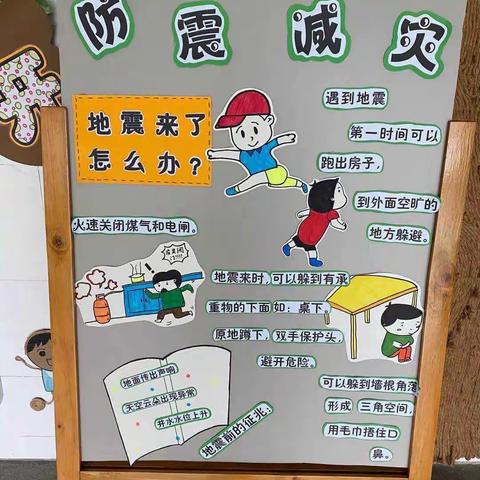 防震减灾
地震来了
怎么办？
遇到地震
第一时间可以
跑出房子，
到外面空旷的
地方躲避。
火速关闭煤气和电闸。
地震来时，可以躲到有承
重物的下面 如：桌下。
原地蹲下，双手保护头，
避开危险。
可以躲到墙根角落
形成 三角空间，
用毛巾捂住口
鼻。
地面传出声响
天空云朵出现异常
井水水位上升
地震前的征兆：